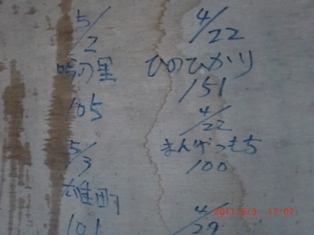 5/2
吟の里
105
5/3
雄町
101
4/22
ひのひかり
151
4/22
まんげつもち
100
4/29